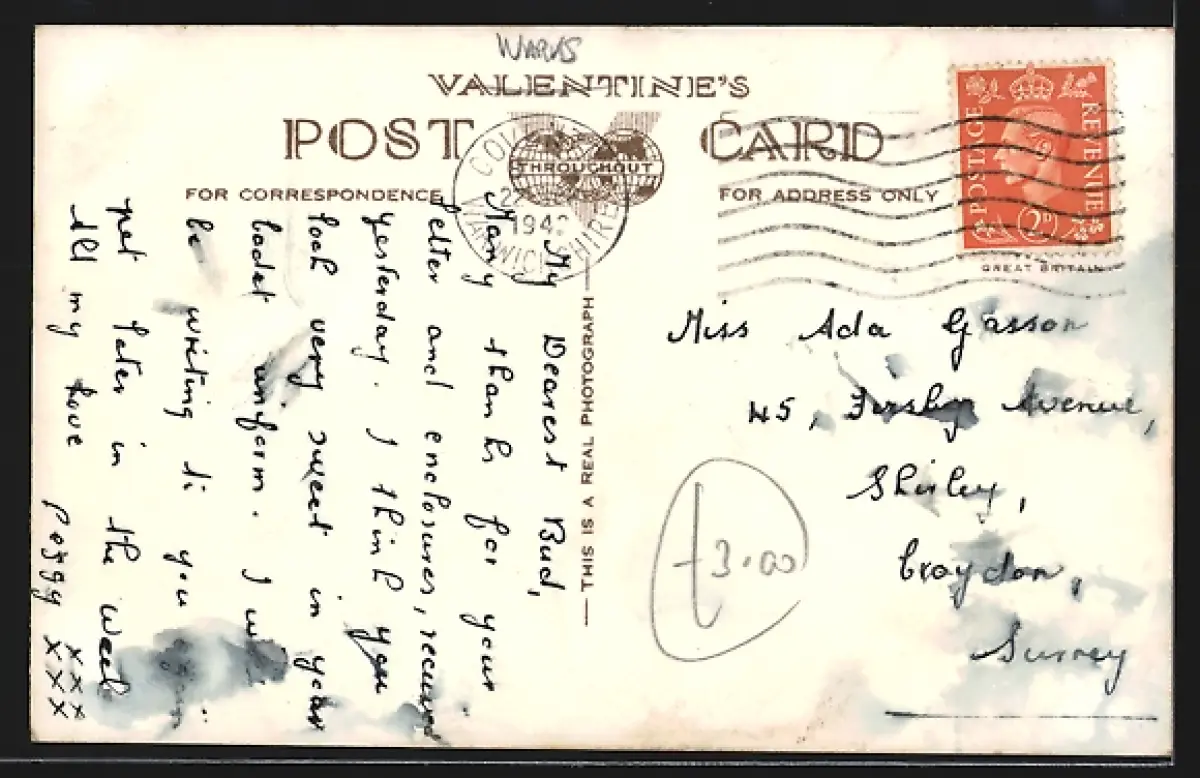 WARKS
VALENTINE'S
POST CARD
THROUGHOUT
FOR CORRESPONDENCE
FOR ADDRESS ONLY
WARWICKSHIRE
POSTAGE REVENUE
2D
GREAT BRITAIN
THIS IS A REAL PHOTOGRAPH
My Dearest Bud,
Many thanks for your
letter and enclosures, received
yesterday. I think you
look very sweet in your
Cadet uniform. I will
be writing to you again
yet later in the week
All my love
Peggy xxx
xxx
Miss Ada Gasson
45, Avenue,
Shirley,
Croydon,
Surrey
£3.00